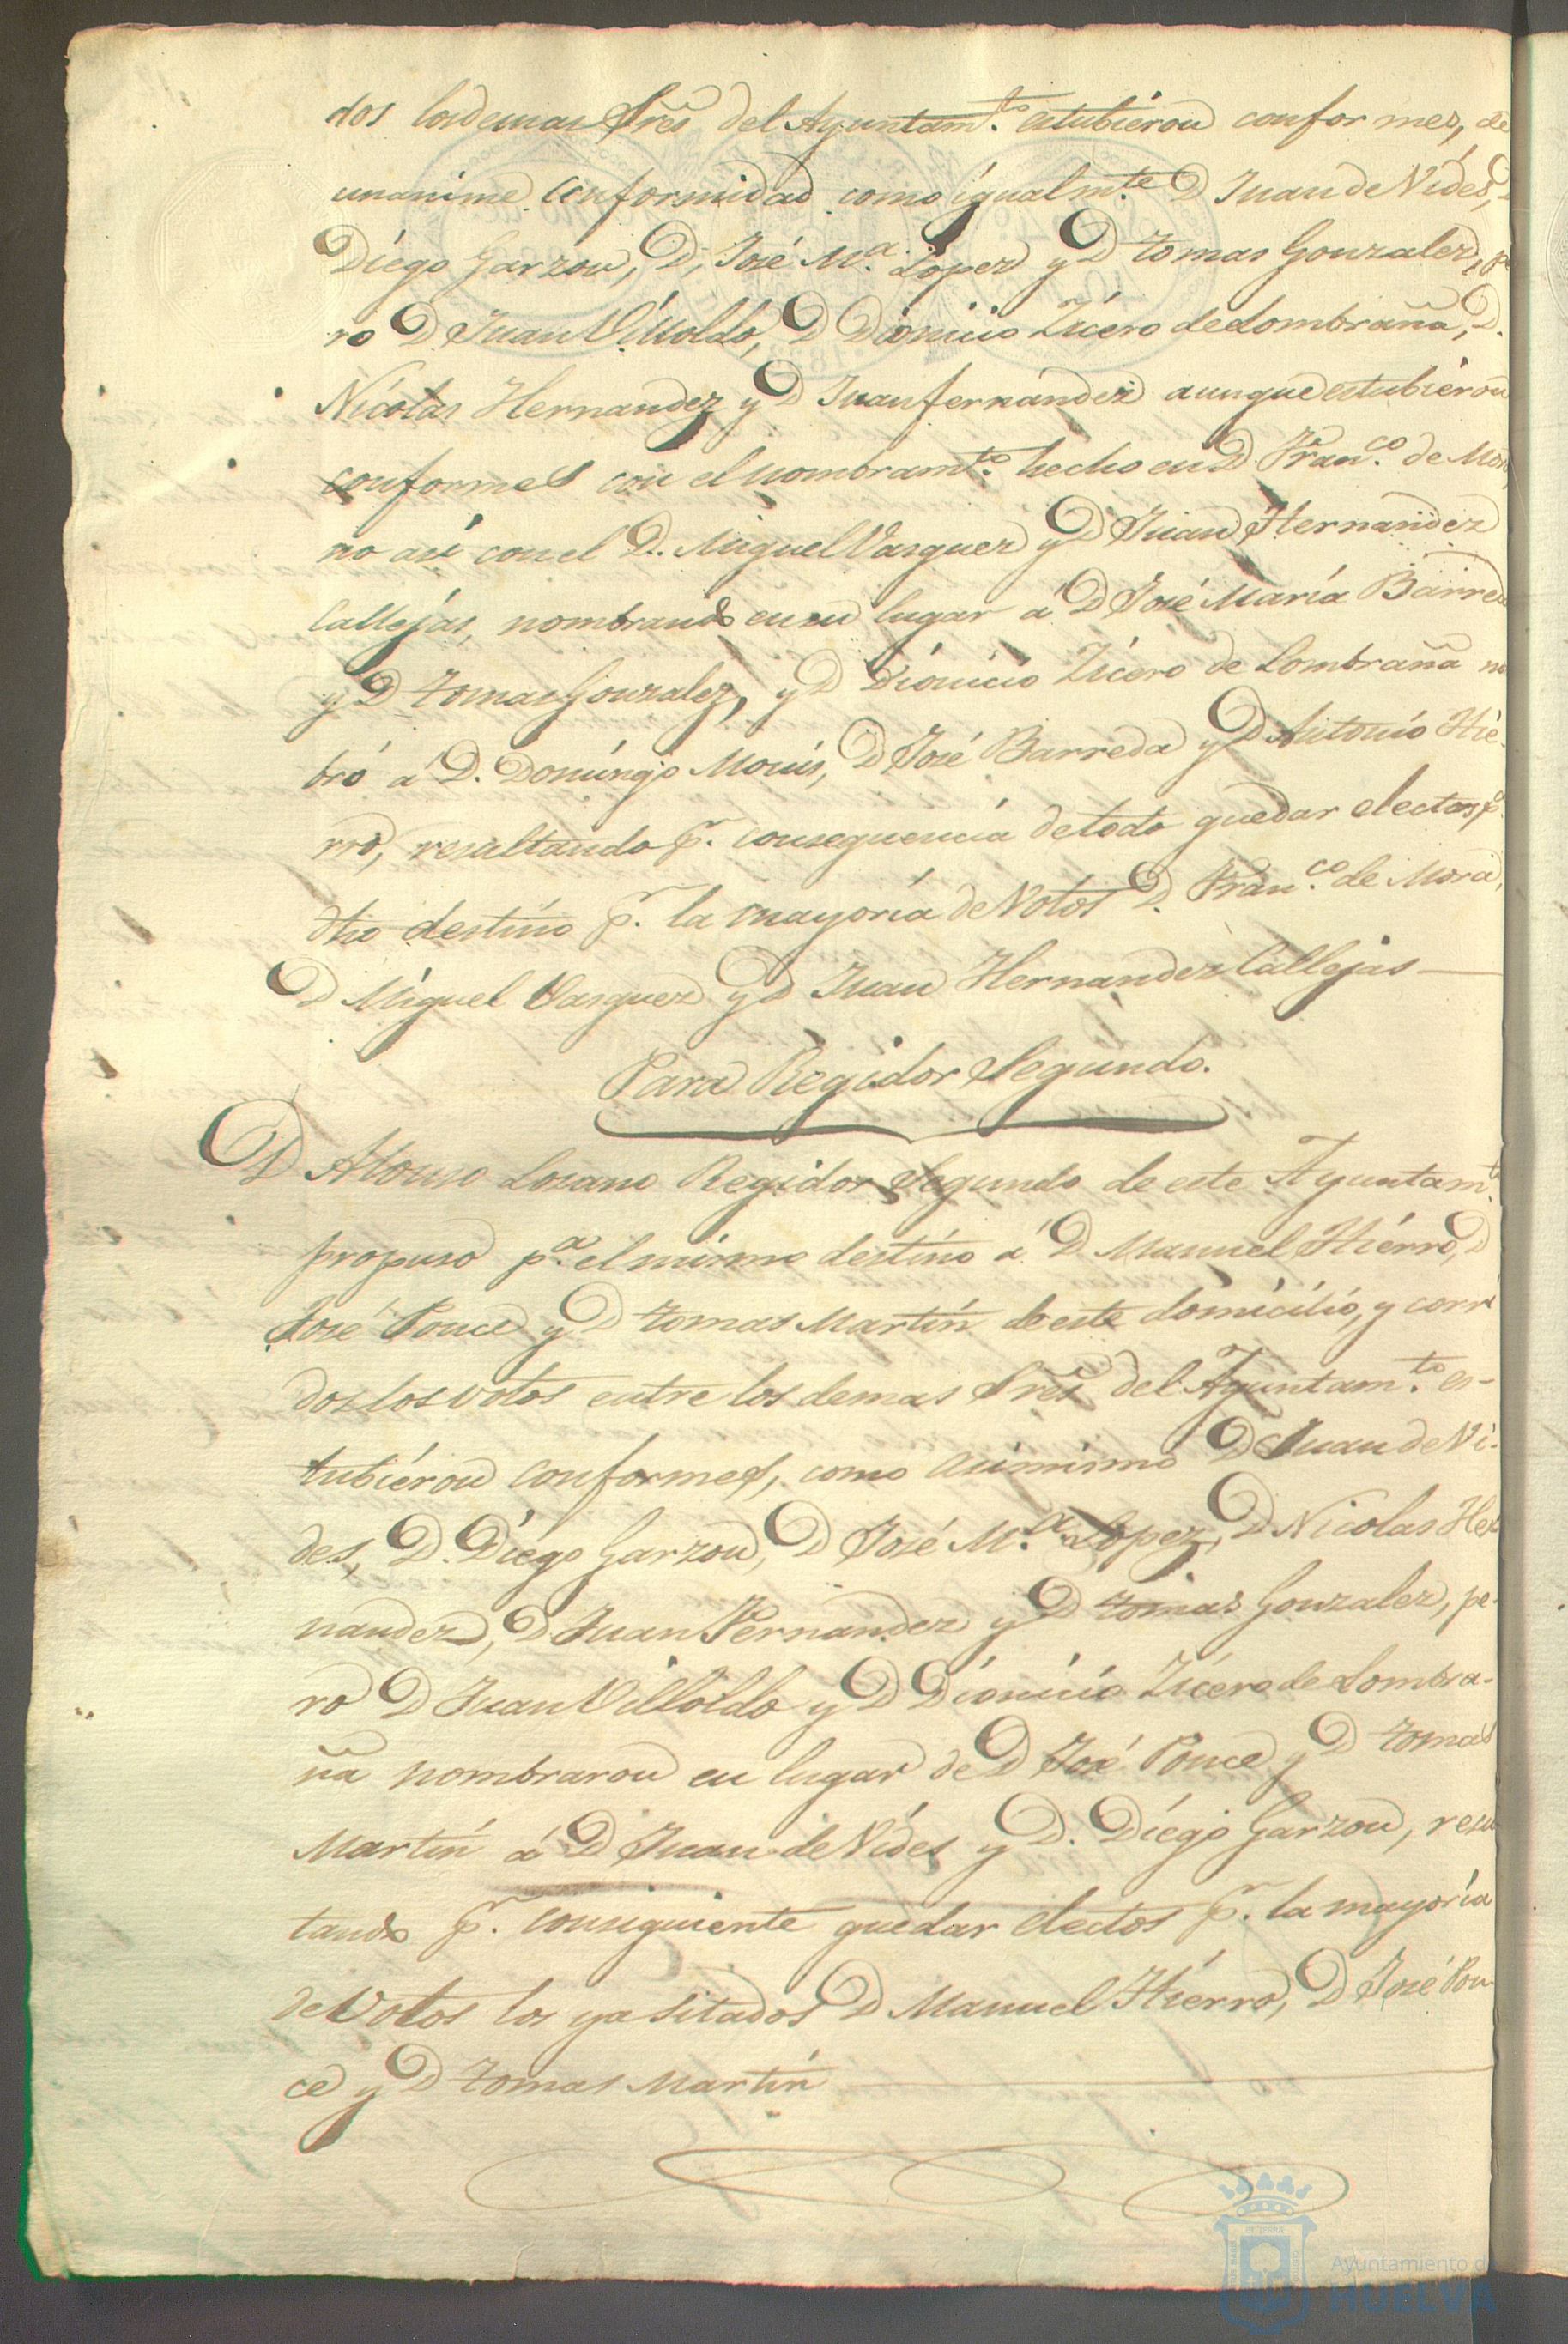 dos los demas Sres del Ayuntam.to estubieron conformes, de
unanime conformidad como igualm.te D Juan de Vides,
Diego Garzon, D, José M.a Lopez y D tomas Gonzalez, pe
ro D Juan Villoldo, D Dionicio Zicero de Lombraña, D.
Nicolas Hernandez y D Juan fernandez aunque estubieron
conformes con el nombram.to hecho en D. Fran.co de Mora
no asi con el D. Miguel Vasquez y D Juan Hernandez
Callejas, nombrando en su lugar á D José María Barreda
y D tomas Gonzalez, y D Dionicio Zicero de Lombraña no
bró á D. Domingo Monis, D José Barreda y D Antonio Hie-
rro, resultando p.r consequencia de todo quedar electos p.a
dho destino p.r la mayoría de Votos D. Fran.co de Mora,
D Miguel Vasquez y D Juan Hernandez Callejas
Para Regidor Segundo.
D Alonso Lozano Regidor Segundo de este Ayuntam.to
propuso p.a el mismo destino á D Manuel Hierro, D
José Ponce y D tomas Martín de este domicilio, y corri
dos los votos entre los demas Sres del Ayuntam.to es-
tubieron conformes, como asimismo D Juan de Vi-
des, D. Diego Garzon, D José M.a Lopez, D Nicolas Her
nandez, D Juan Fernandez y D tomas Gonzalez, pe-
ro D Juan Villoldo y D Dionicio Zicero de Lombra-
ña nombraron en lugar de D José Ponce y D tomas
Martín á D Juan de Vides y D. Diego Garzon, resul
tando p.r consiguiente quedar electos p.r la mayoría
de Votos los ya sitados D Manuel Hierro, D José Pon-
ce y D tomas Martín
Ayuntamiento de
HUELVA